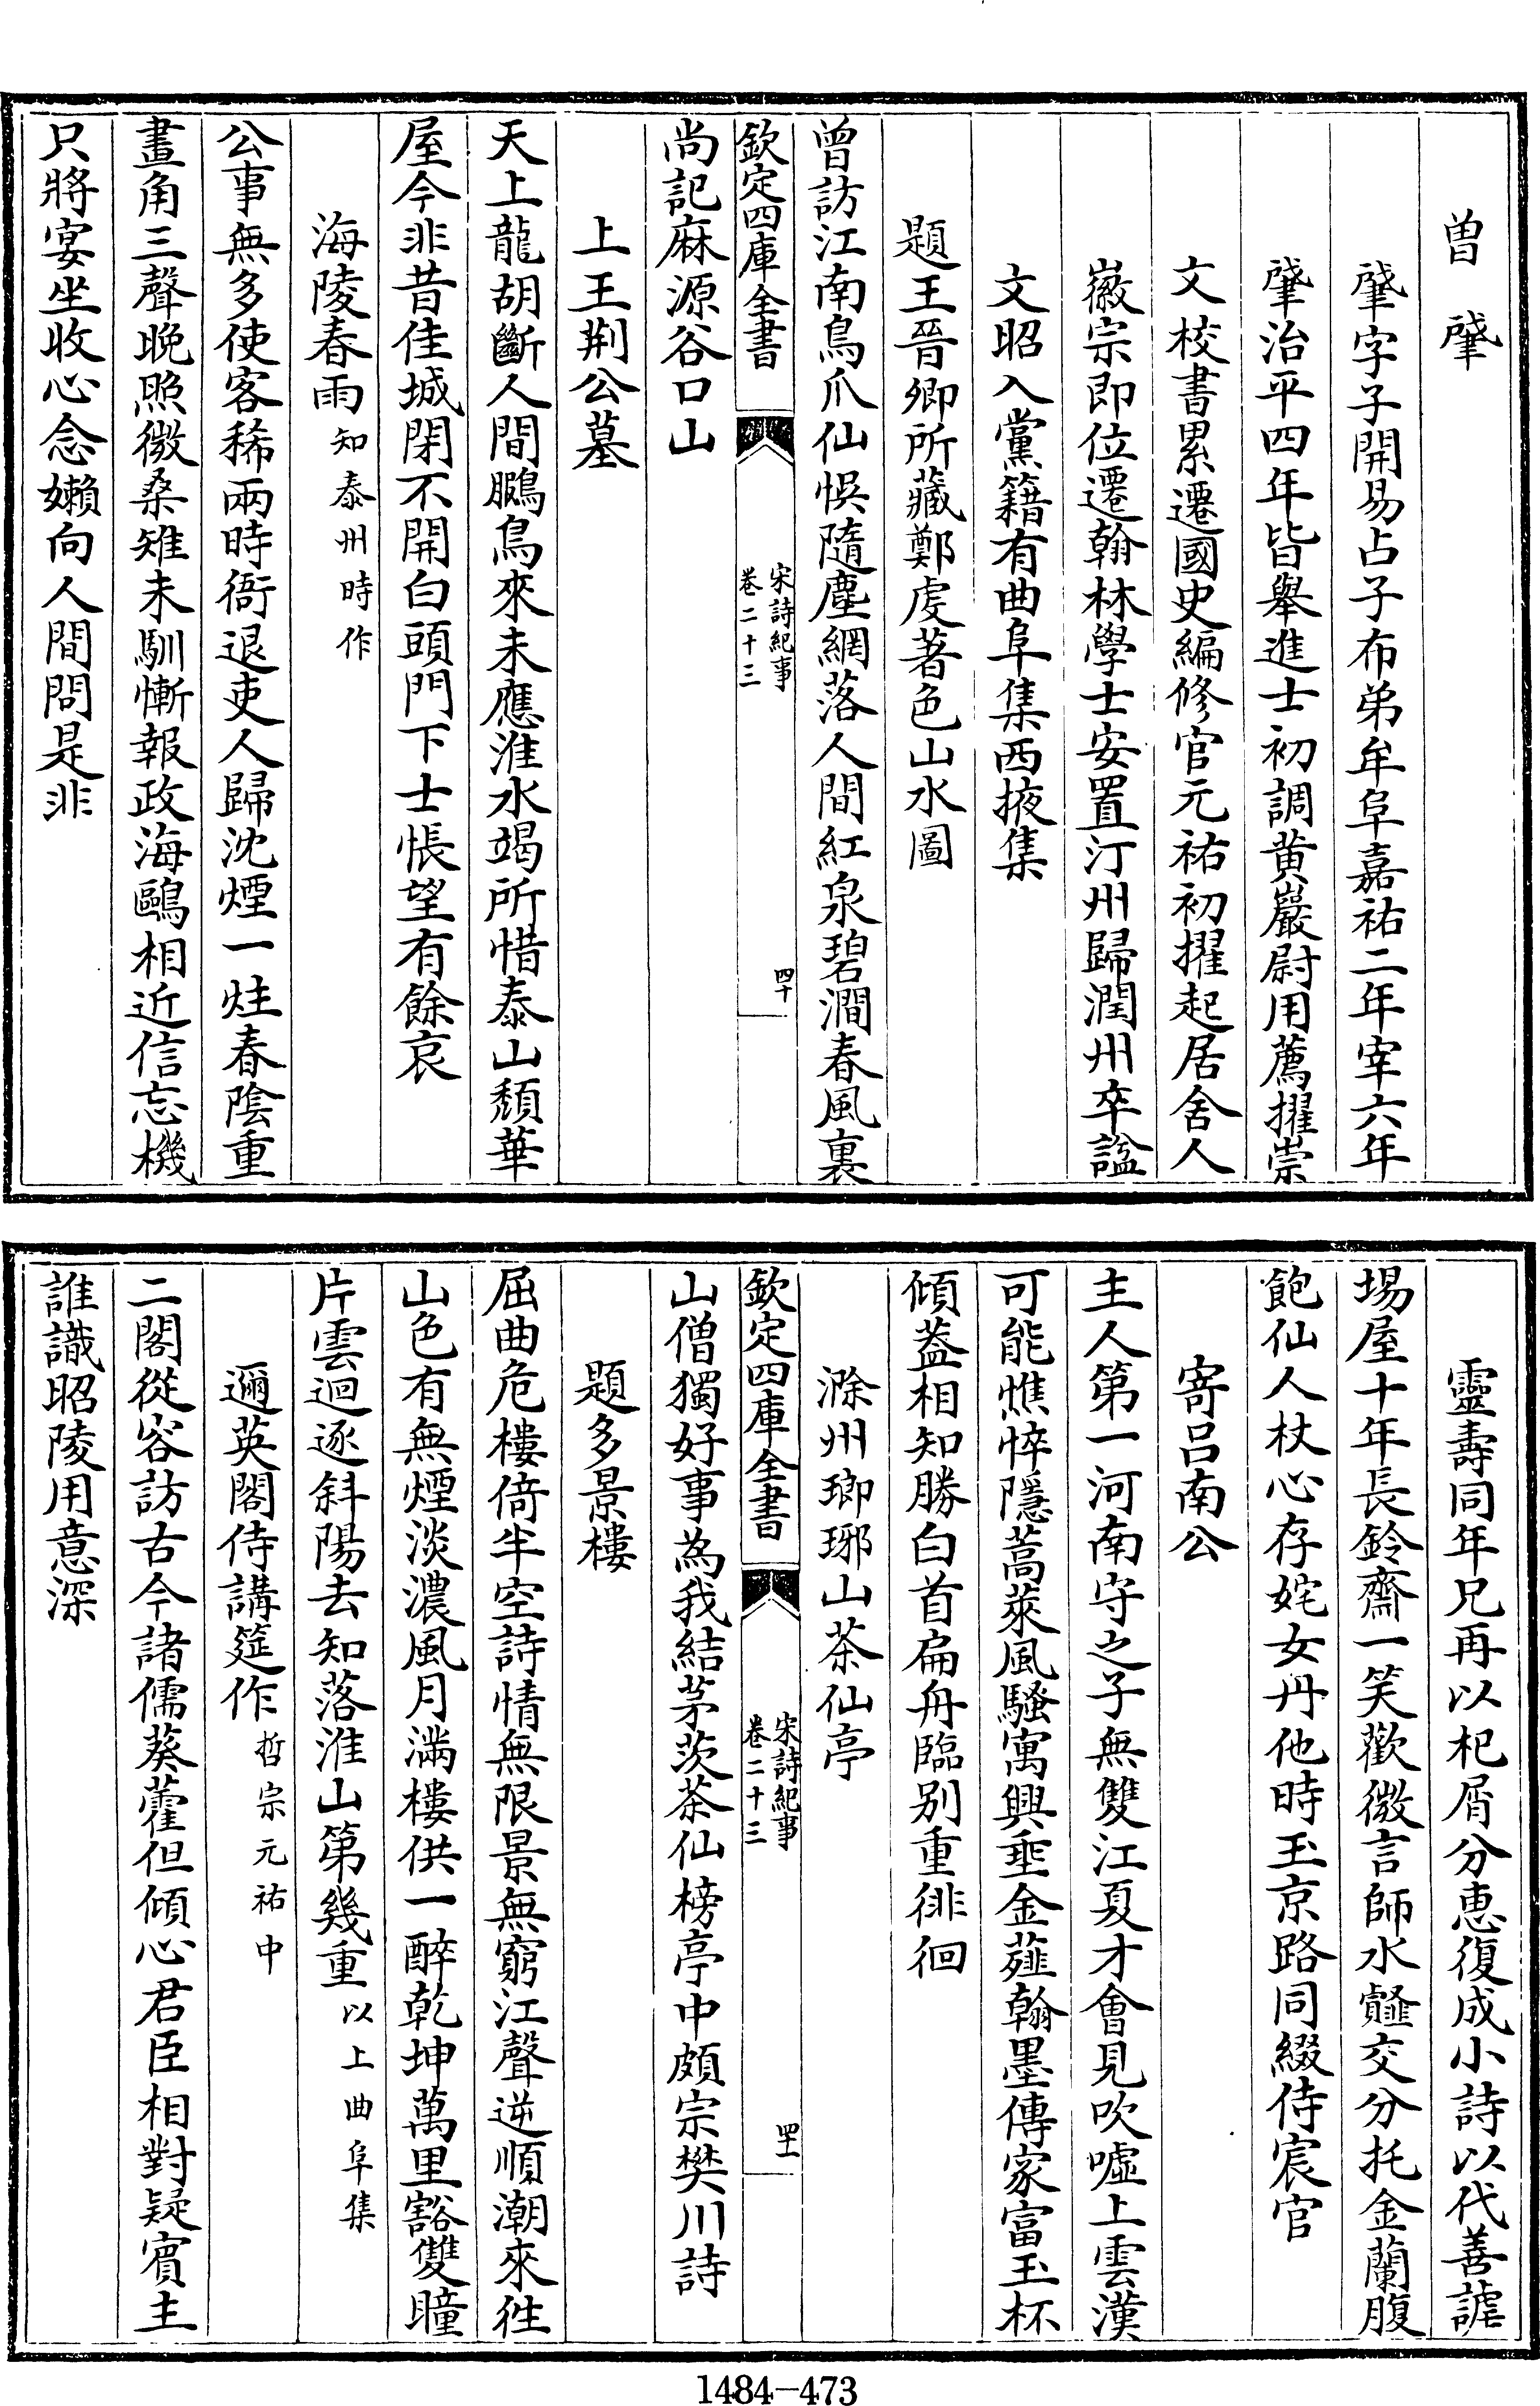 曾肇
肇字子開易占子布弟牟阜嘉祐二年宰六年
肇治平四年皆舉進士初調黃巖尉用薦擢崇
文校書累遷國史編修官元祐初擢起居舍人
徽宗即位遷翰林學士安置汀州歸潤州卒諡
文昭入黨籍有曲阜集西掖集
題王晉卿所藏鄭虔著色山水圖
曾訪江南鳥爪仙悞隨塵網落人間紅泉碧澗春風裏
欽定四庫全書
宋詩紀事
卷二十三
四十
尚記麻源谷口山
上王荆公墓
天上龍胡斷人間鵩鳥來未應淮水竭所惜泰山頹華
屋今非昔佳城閉不開白頭門下士悵望有餘哀
海陵春雨知泰州時作
公事無多使客稀兩時衙退吏人歸沈煙一炷春陰重
畫角三聲晚照微桑雉未馴慚報政海鷗相近信忘機
只將宴坐收心念嬾向人間問是非
靈壽同年兄再以杞屑分惠復成小詩以代善謔
場屋十年長鈴齋一笑歡微言師水韰交分托金蘭腹
飽仙人杖心存姹女丹他時玉京路同綴侍宸官
寄呂南公
主人第一河南守之子無雙江夏才會見吹噓上雲漢
可能憔悴隱蒿萊風騷寓興垂金薤翰墨傳家富玉杯
傾蓋相知勝白首扁舟臨别重徘徊
滁州瑯琊山茶仙亭
欽定四庫全書
宋詩紀事
卷二十三
四十一
山僧獨好事為我結茅茨茶仙榜亭中頗宗樊川詩
題多景樓
屈曲危樓倚半空詩情無限景無窮江聲逆順潮來徃
山色有無煙淡濃風月滿樓供一醉乾坤萬里豁雙瞳
片雲迴逐斜陽去知落淮山第幾重以上曲阜集
邇英閣侍講筵作哲宗元祐中
二閣從容訪古今諸儒葵藿但傾心君臣相對疑賓主
誰識昭陵用意深
1484-473